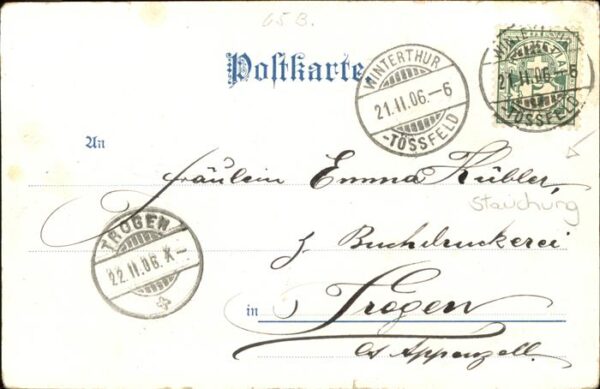 65 B.
Postkarte.
WINTERTHUR
21.II.06.-6
-TÖSSFELD
WINTERTHUR
21.II.06.-6
-TÖSSFELD
An
Fräulein Emma Kübler,
Stauchung
z. Buchdruckerei
TROGEN
22.II.06.X-
in Trogen
Ct. Appenzell.